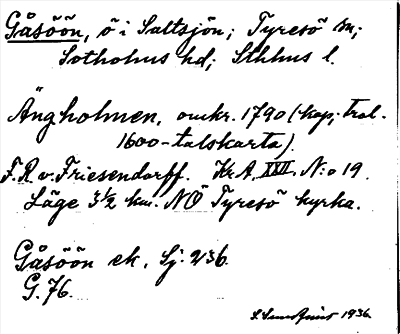 Gåsöön, ö i Saltsjön; Tyresö sn;
Sotholms hd; Sthlms l.
Ängholmen, omkr. 1790 (kop; trol.
1600-talskarta).
F. R. v. Friesendorff. Kr.A. XXII. N:o 19.
Läge 3½ km. NÖ Tyresö kyrka.
Gåsöön ek. Sj. 236.
G. 76.
1936.